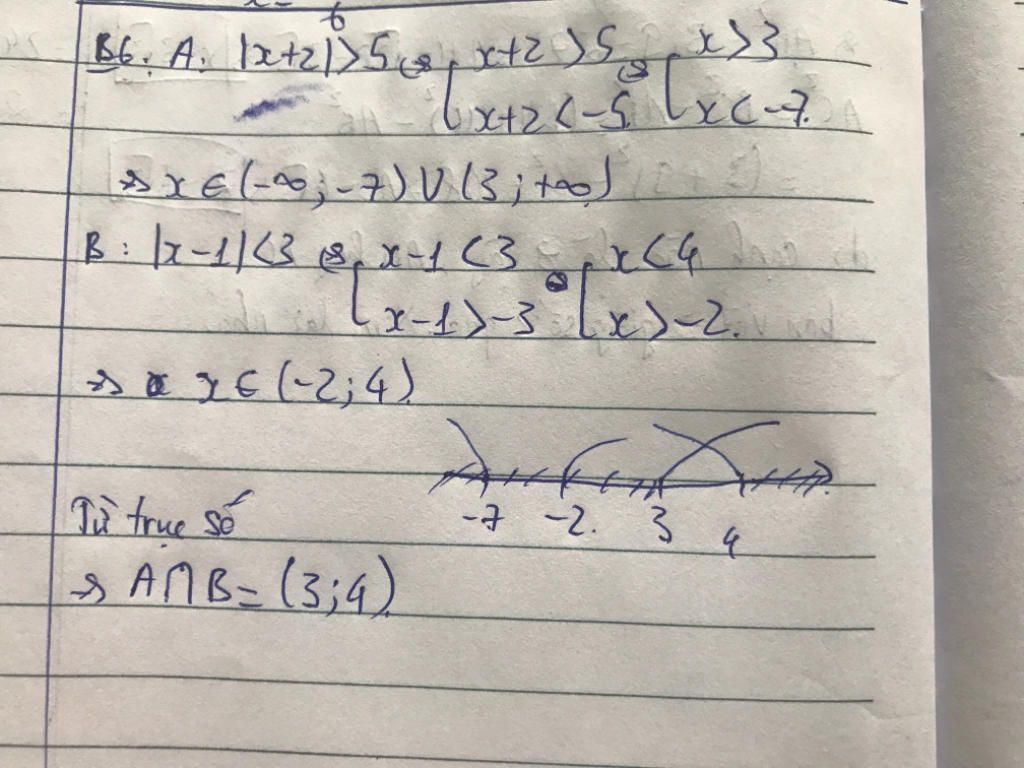 6
B6: A: |x+2|>5 ⇔ [ x+2>5 ⇔ [ x>3
x+2<-5. x<-7.
→ x ∈ (-∞; -7) U (3; +∞)
B: |x-1|<3 ⇔ [ x-1<3 ⇔ [ x<4
x-1>-3 x>-2.
→ x ∈ (-2; 4).
-7 -2. 3 4
Từ trục số
→ A∩B = (3;4).